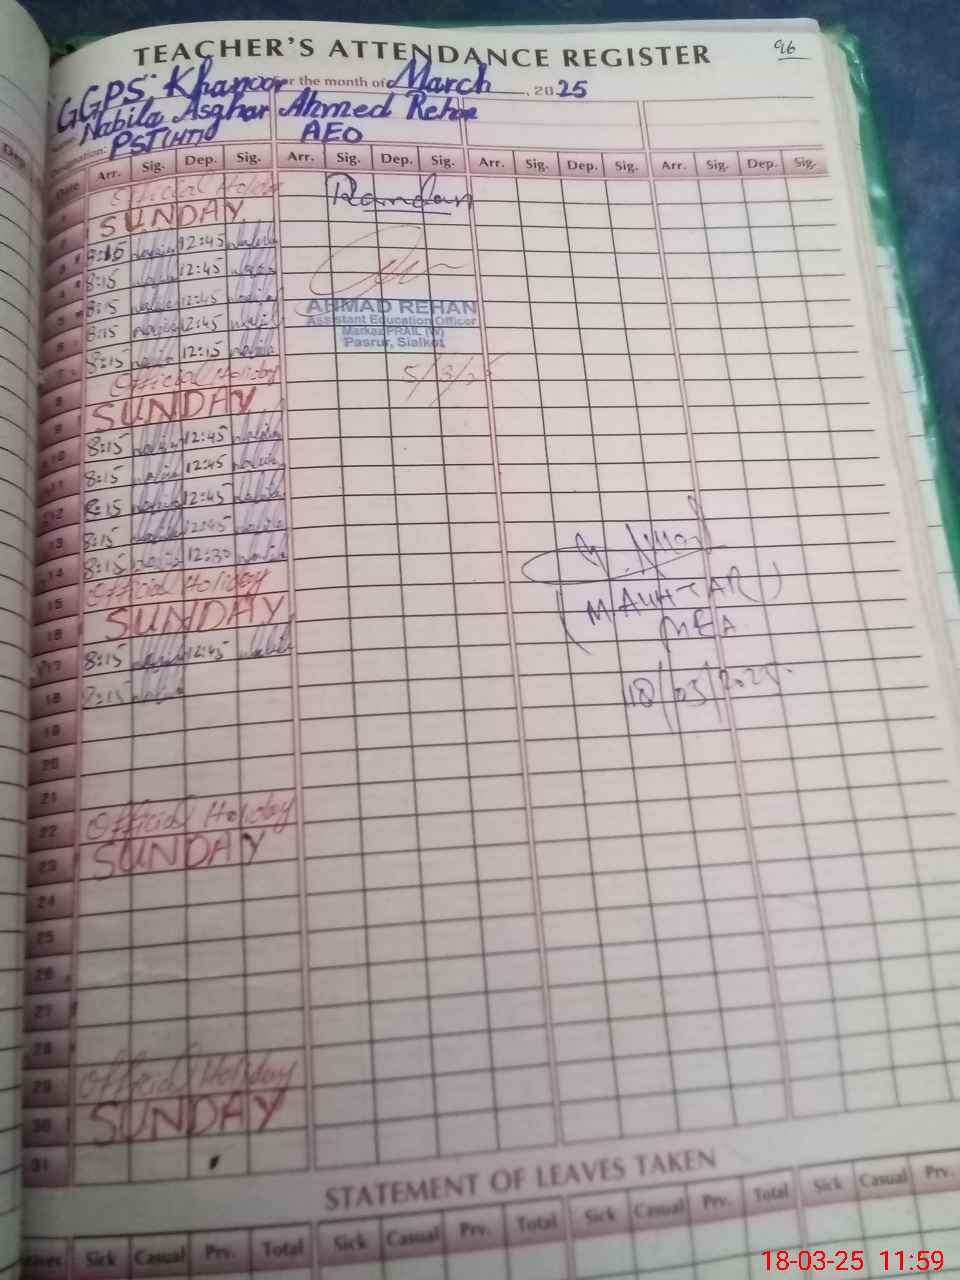 TEACHER'S ATTENDANCE REGISTER
96
GGPS Khanpor For the month of March, 2025
Nabila Asghar Ahmed Rehan
Designation: PST (HT) AEO
Date Arr. Sig. Dep. Sig. Arr. Sig. Dep. Sig. Arr. Sig. Dep. Sig. Arr. Sig. Dep. Sig.
1 Official Holiday
2 SUNDAY
Ramdan
3 8:15 12:45
4 8:15 12:45
5 8:15 12:45
6 8:15 12:45
7 8:15 12:15
AHMAD REHAN
Assistant Education Officer
Markaz PRAIL (W)
Pasrur, Sialkot
5/3/25
8 Official Holiday
9 SUNDAY
10 8:15 12:45
11 8:15 12:45
12 8:15 12:45
13 8:15 12:45
14 8:15 12:30
15 Official Holiday
16 SUNDAY
17 8:15 12:45
18 8:15
MEA
18/03/2025
19
20
21
22 Official Holiday
23 SUNDAY
24
25
26
27
28
29 Official Holiday
30 SUNDAY
31
STATEMENT OF LEAVES TAKEN
Leaves Sick Casual Prv. Total Sick Casual Prv. Total Sick Casual Prv. Total Sick Casual Prv.
18-03-25 11:59